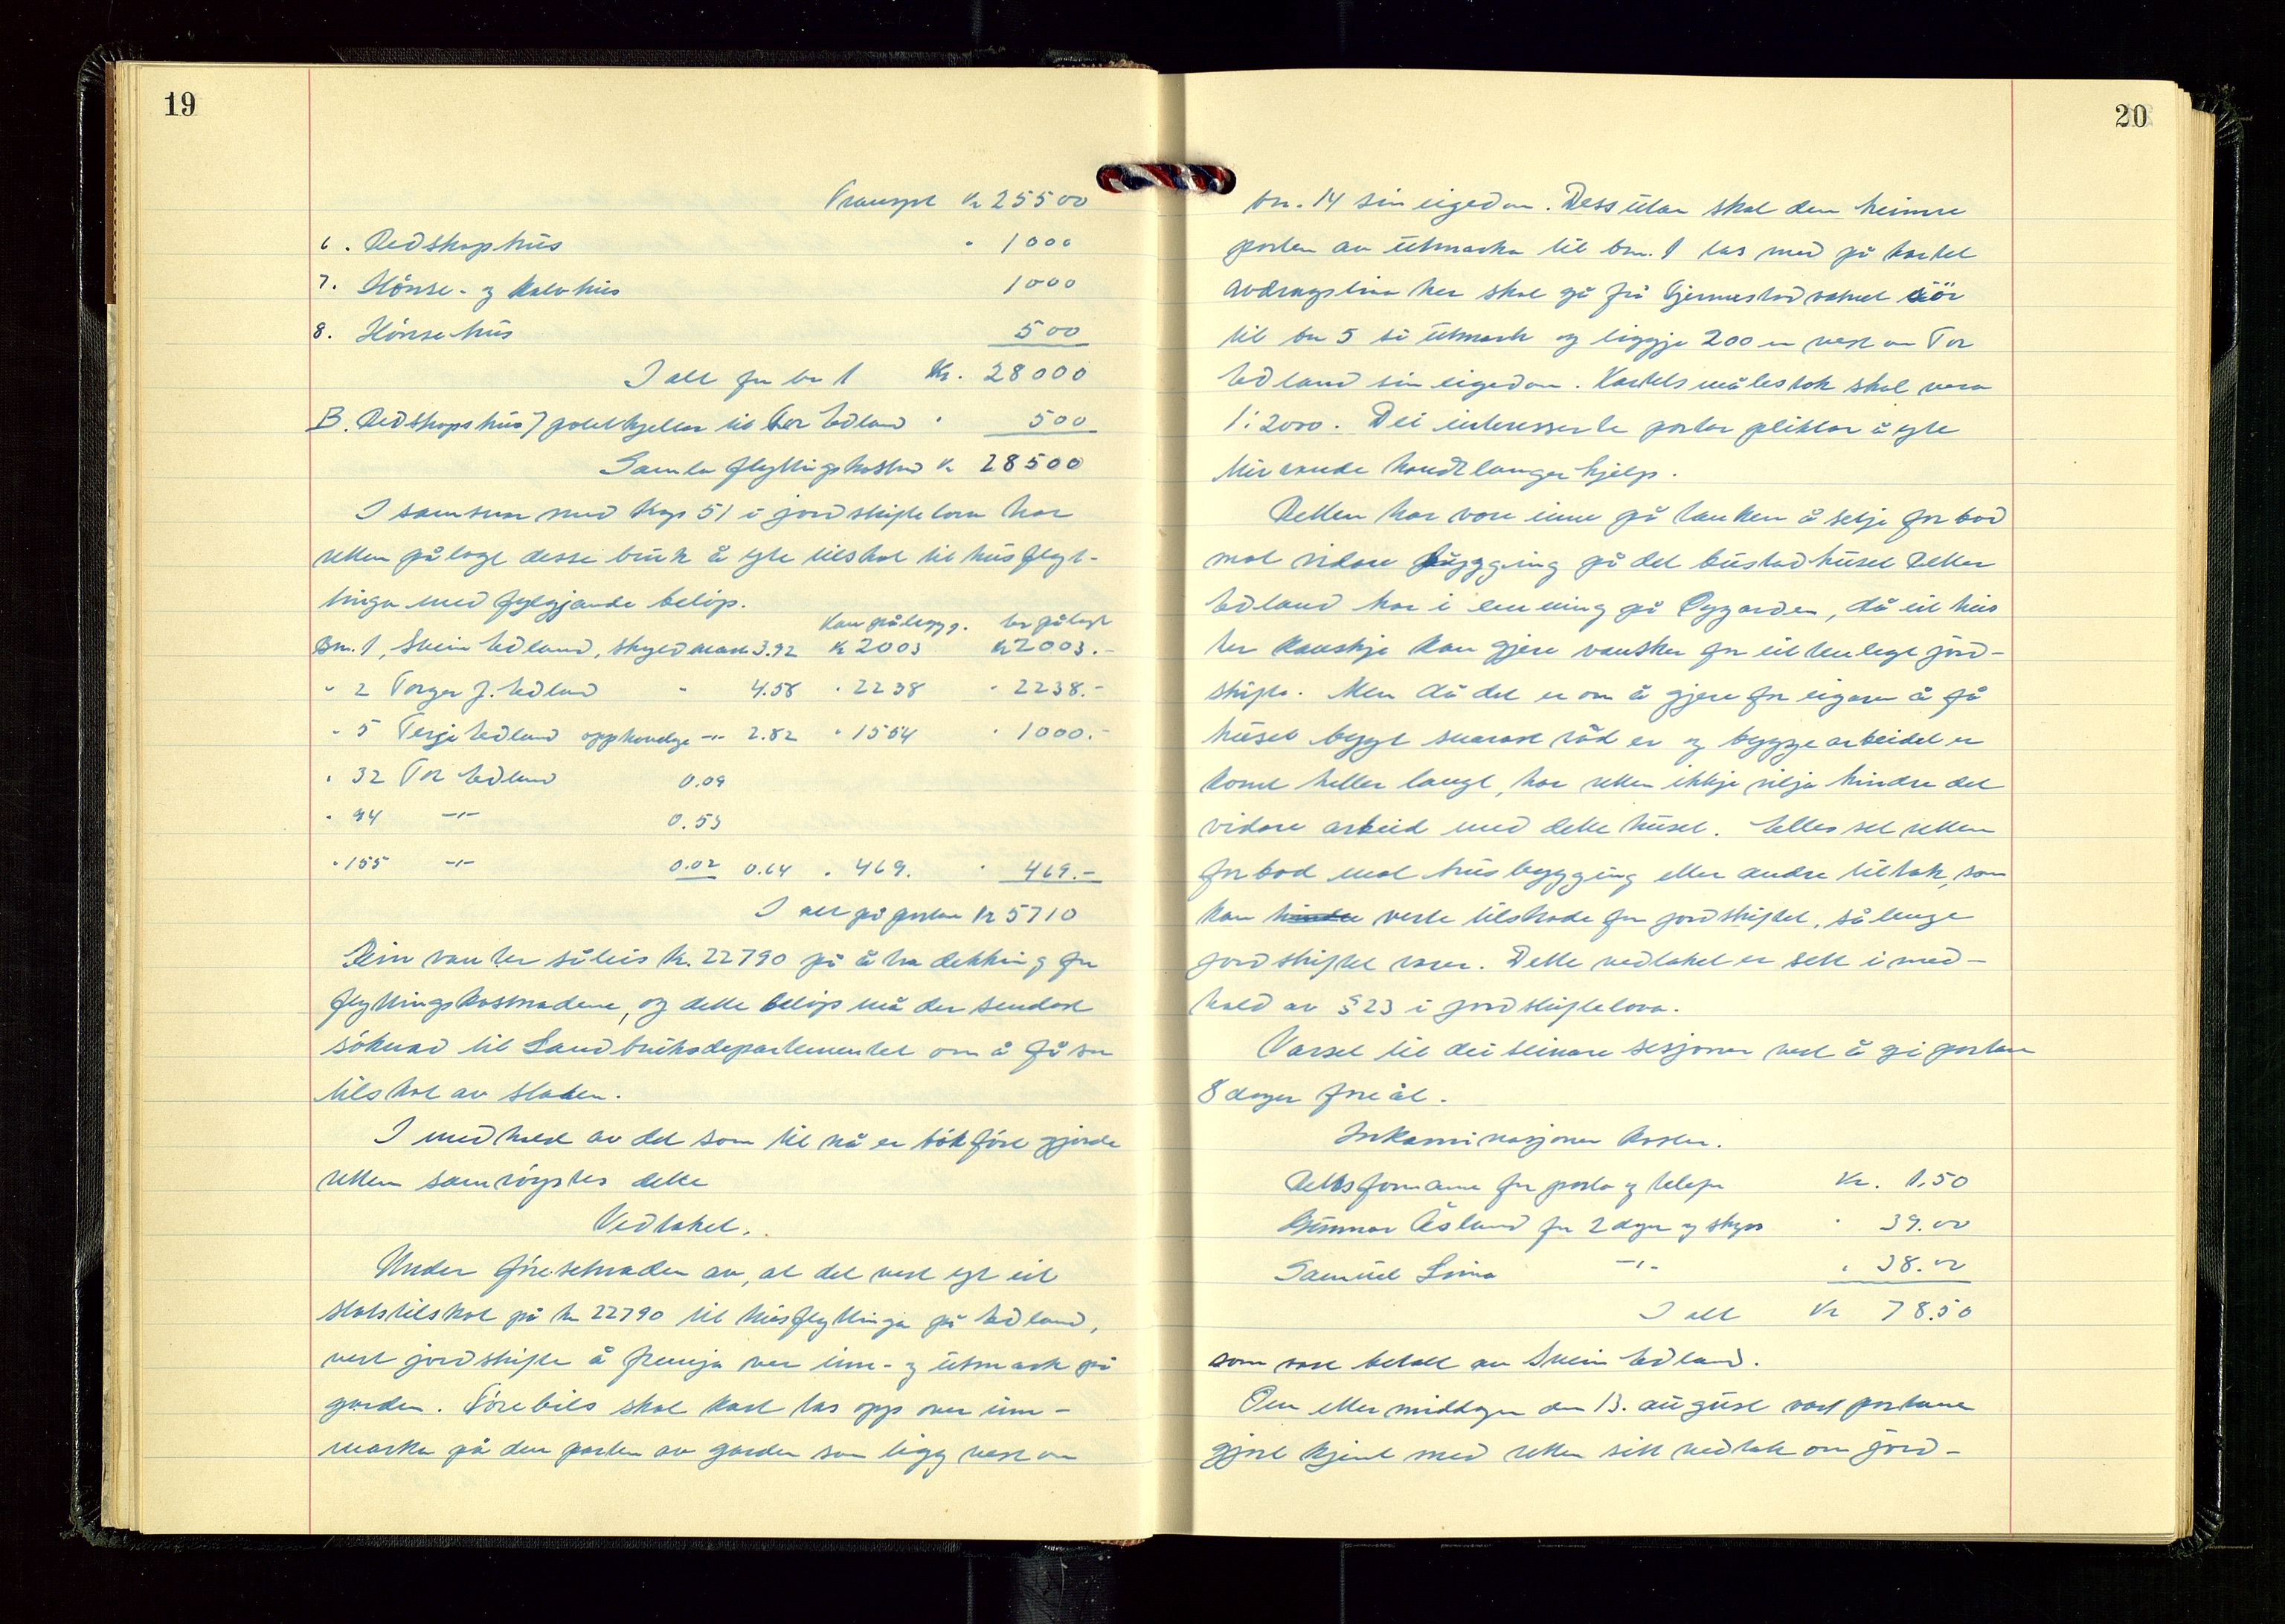 19
Transport Kr 25500
6. Redskaphus " 1000
7. Hönse- og kalvhus 1000
8. Hönsehus 500
I alt for bn 1 Kr. 28000
B. Redskapshus / potetkjellar til Tor Edland " 500
Samla flyttingskostnad Kr 28500
I samsvar med kap 51 i jordskiftelova har
retten pålagt desse bruk å yte tilskot til husflyt-
tinga med fylgjande belöp.
Kan pålegg. er pålagt
Bn. 1, Svein Edland, skyldmark 3.92 Kr 2003 Kr 2003.-
" 2 Torger J. Edland " 4.58 " 2238 " 2238.-
" 5 Terje Edland opphavelege -"- 2.82 " 1554 " 1000.-
" 32 Tor Edland 0.09
" 94 -"- 0.53
" 155 -"- 0.02 0.64 " 469. " 469.-
I alt på partane Kr 5710
Dein vanter såleis kr. 22790 på å ha dekking for
flyttingskostnadene, og dette belöp må der sendast
söknad til Landbruksdepartementet om å få som
tilskot av staten.
I medhald av det som til nå er bokfört gjorde
retten samröystes dette
Vedtaket.
Under föresetnaden av, at det vert ytt eit
statstilskot på kr 22790 til husflyttinga på Edland,
vert jordskifte å fremja over inn- og utmark på
garden. Förebils skal kart tas opp over inn-
marka på den parten av garden som ligg vest om
20
bn. 14 sin eigedom. Dessutan skal den heimre
parten av utmarka til bn. 1 tas med på kartet
avdragslina her skal gå frå Gjermestadvatnet sör
til bn 5 si utmark og liggje 200 m vest om Tor
Edland sin eigedom. Kartets målestok skal vera
1:2000. Dei interesserte partar pliktar å yte
turvande handtlangerhjelp.
Retten har vore inne på tanken å setje forbod
mot vidare bygging på det bustadhuset Petter
Edland har i emning på Öygarden, då eit hus
her kanskje kan gjere vansker for eit tenlegt jord-
skifte. Men då det er om å gjere for eigaren å få
huset bygt snarast råd er og byggjearbeidet er
kome heller langt, har retten ikkje vilja hindre det
vidare arbeid med dette huset. Elles set retten
forbod mot husbygging eller andre tiltak, som
kan hindre verte tilskade for jordskiftet, så lenge
jordskiftet varer. Dette vedtaket er sett i med-
hald av § 23 i jordskiftelova.
Varsel til dei seinare sesjonar vert å gi partane
8 dager föreåt.
Inkaminasjonen kosta.
Rettsformanne for porto og telefon Kr. 1.50
Gunnar Åsland for 2 dagar og skyss " 39.00
Samuel Lima -"- " 38.00
I alt Kr 78.50
som vart betalt av Svein Edland.
Om ettermiddagen den 13. august vart partane
gjort kjent med retten sitt vedtak om jord-